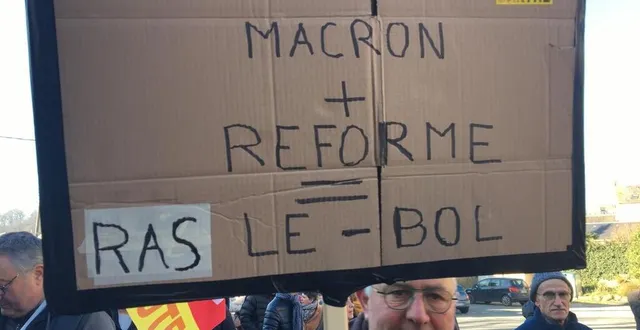 MACRON
+
REFORME
=
RAS LE-BOL